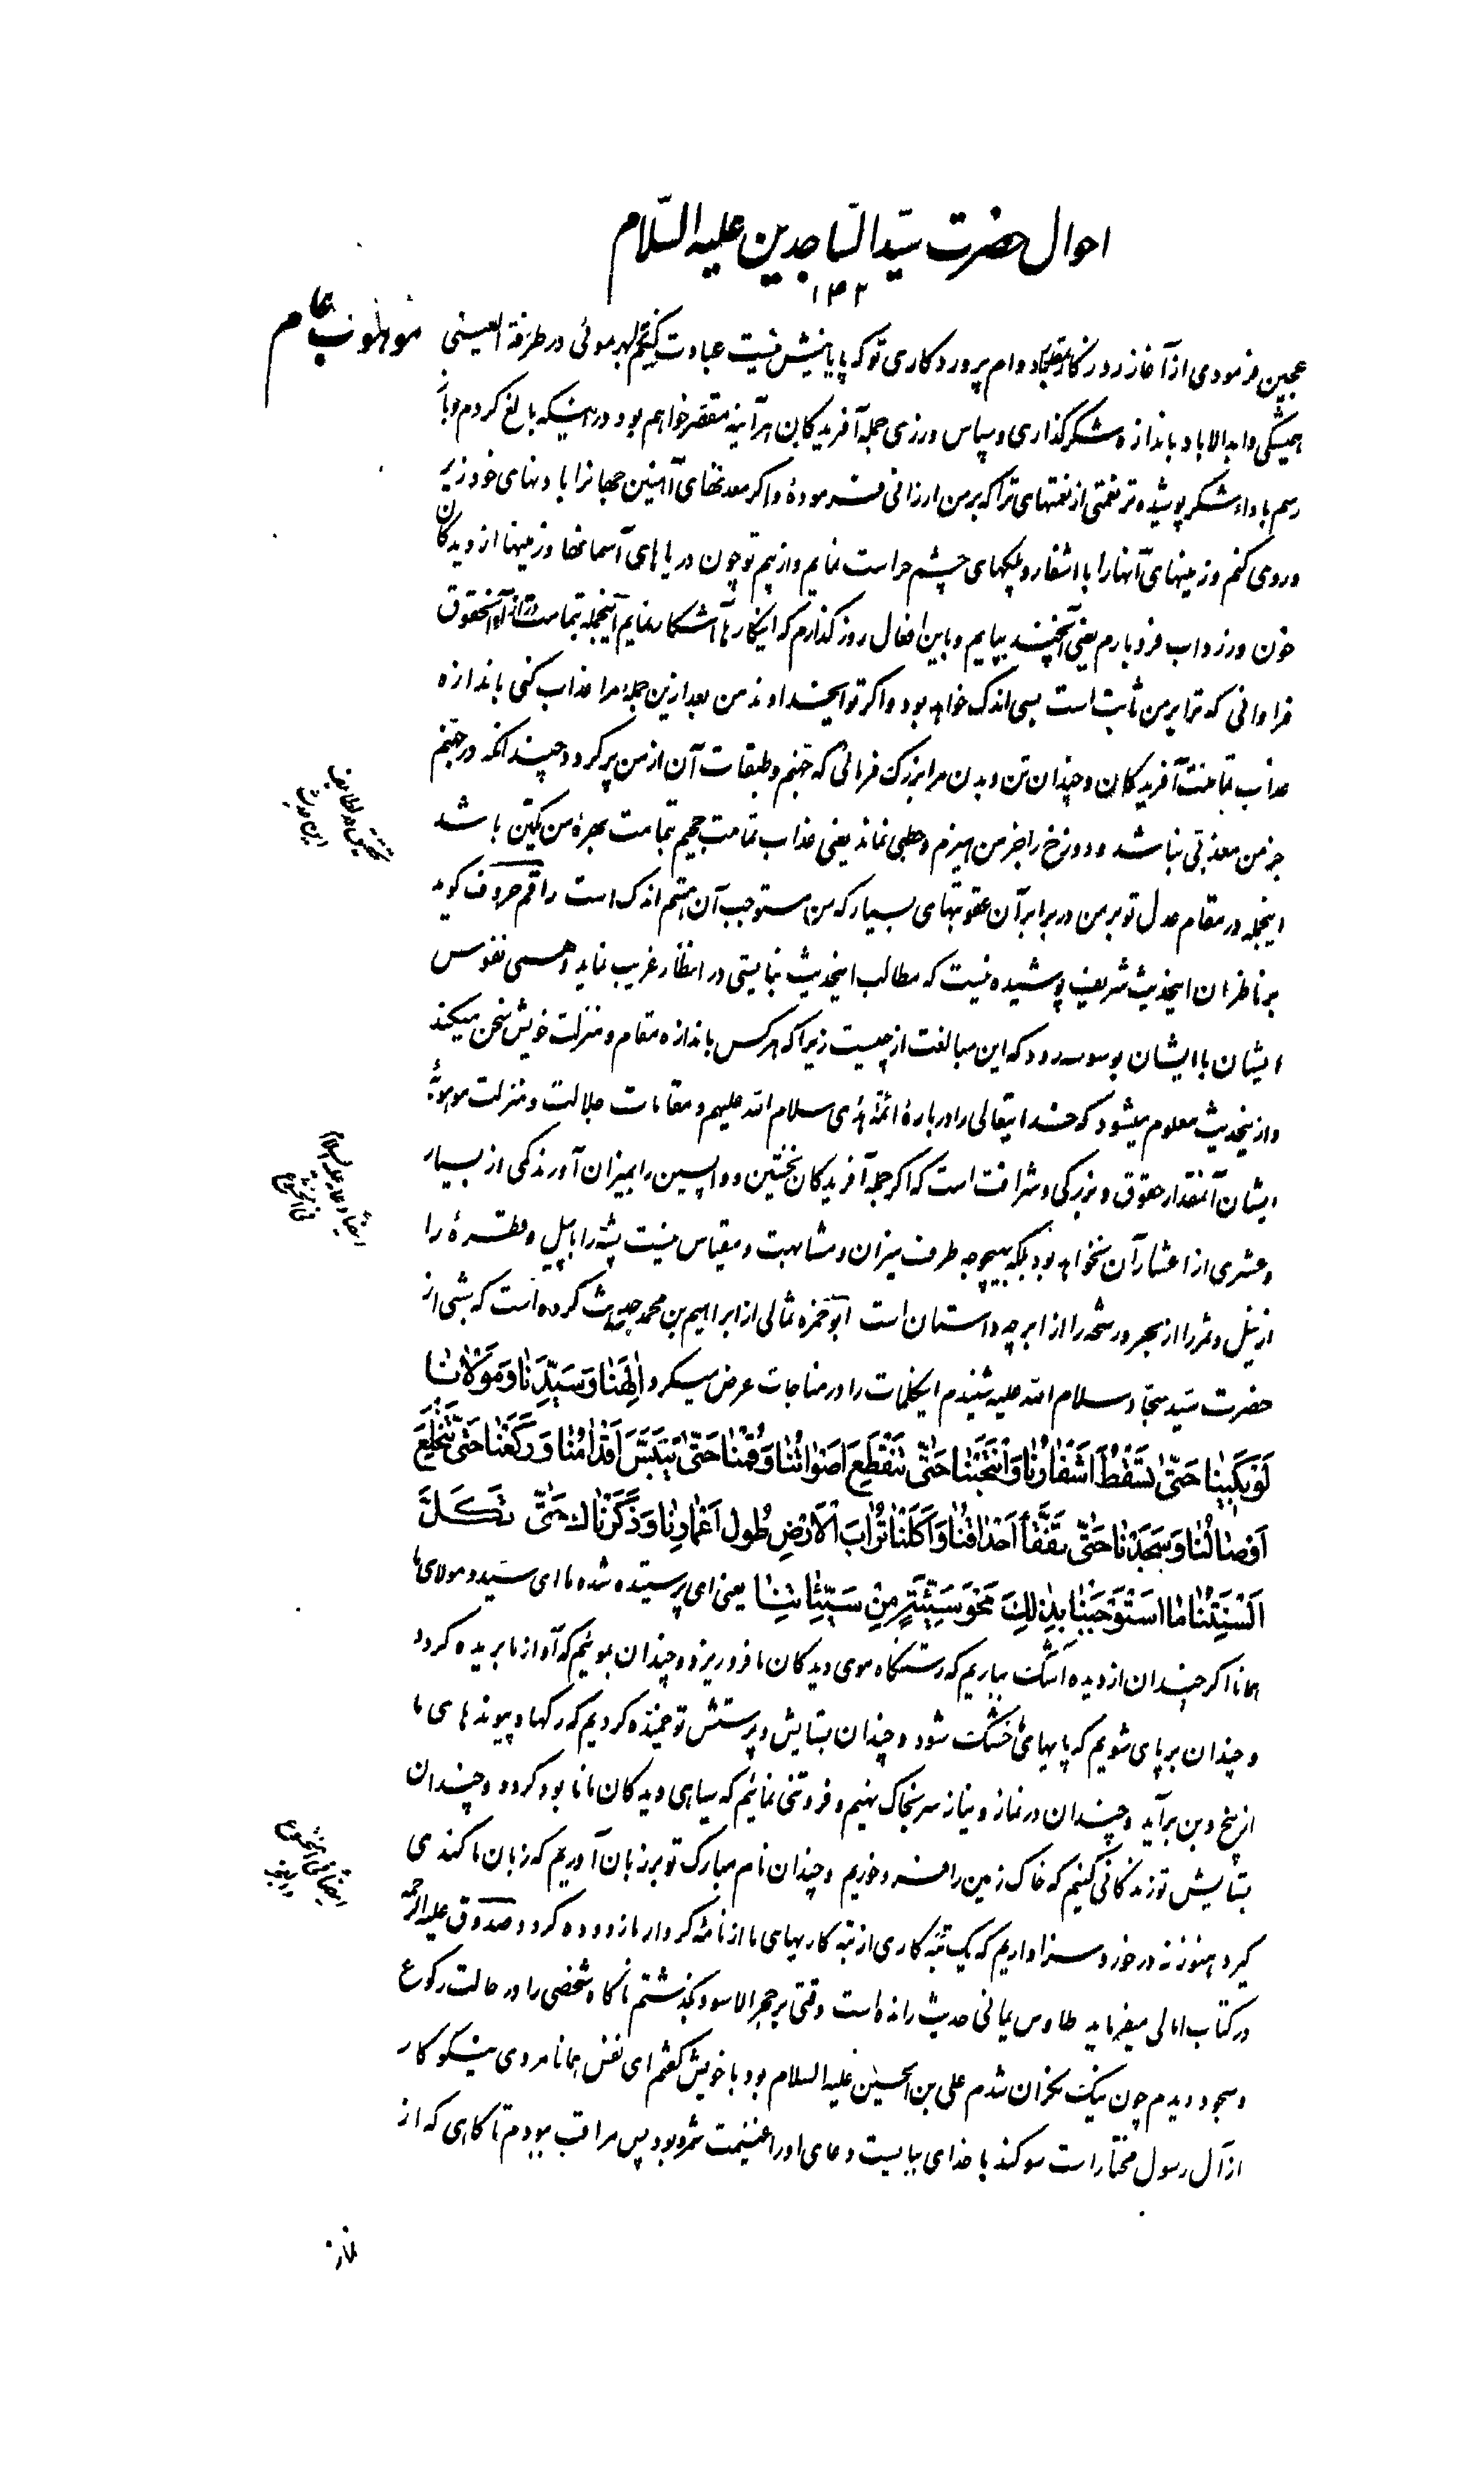 احوال حضرت سیّد السّاجدین علیه السّلام
۱۴۲
عجین فرمودی از آغاز روزگار دوام پروردکاری تو که پایانیش نیست عبادت کنم بهر موئی در طرفة العینی
همیشگی و ابدالاباد باندازه شکر گذاری و سپاس ورزی جمله آفریدکان هرآینه مقصّر خواهم بود در اینکه بالغ کردم و باز
رسم باداء شکر پوشیده تر نعمتی از نعمتهای ترا که بر من ارزانی فرمودهٔ و اکر معدنهای آهنین جهانرا با دنهای خود زیر
و روی کنم و زمینهای آنها را با اشفار و پلکهای چشم حراست نمایم و از بیم تو چون دریاهای آسمانها و زمینها از دیدکان
خون و زرداب فرو بارم یعنی آنچند بپایم و باین افعال روز گذارم که اینکارها آشکار نمایم اینجمله بتمامت در ازاء آنحقوق
فراوانی که ترا بر من ثابت است بسی اندک خواهد بود و اکر تو ایخداوند من بعد ازین جمله مرا عذاب کنی باندازه
عذاب بتمامت آفریدکان و چندان تن و بدن مرا بزرک فرمائی که جهنم و طبقات آن از من پر کردد چندانکه در جهنم
جز من معذبی نباشد و دوزخ را جز من هیزم و حطبی نماند یعنی عذاب تمامت جحیم بتمامت بهرهٔ من یکتن باشد
اینجمله در مقام عدل تو بر من در برابر آن عقوبتهای بسیار که من مستوجب آن هستم اندک است راقم حروف کوید
بر ناظران اینحدیث شریف پوشیده نیست که مطالب اینحدیث بنایستی در انظار غریب نماید و همی نفوس
ایشان با ایشان بوسوسه رود که این مبالغت از چیست زیرا که هر کس باندازه مقام و منزلت خویش سخن میکند
و از اینحدیث معلوم میشود که خدایتعالی را در بارهٔ ائمّه هدی سلام الله علیهم و مقامات جلالت و منزلت موهوبهٔ
ایشان آنمقدار حقوق و بزرکی و شرافت است که اکر جمله آفریدکان نخستین و واپسین را بمیزان آورند کمی از بسیار
و عشری از اعشار آن نخواهد بود بلکه بهیچوجه طرف میزان و مشابهت و مقیاس نیست پشه را با پیل و قطرهٔ را
از نیل و ثمر را از بحر و رشحه را از ابر چه داستان است ابو حمزه ثمالی از ابراهیم بن محمد حدیث کرده است که شبی از
حضرت سیّد سجّاد سلام الله علیه شنیدم اینکلمات را در مناجات عرض میکرد اِلٰهَنا وَسَیِّدَنا وَمَوْلانا
لَوْ بَکَیْنا حَتّیٰ تَسْقُطَ اَشْفارُنا وَانْتَحَبْنا حَتّیٰ تَنْقَطِعَ اَصْواتُنا وَقُمْنا حَتّیٰ تَیْبَسَ اَقْدامُنا وَرَکَعْنا حَتّیٰ تَنْخَلِعَ
اَوْصالُنا وَسَجَدْنا حَتّیٰ تَتَفَقَّأَ اَحْداقُنا وَاَکَلْنا تُرابَ الْاَرْضِ طُولَ اَعْمارِنا وَذَکَرْناکَ حَتّیٰ تَکِلَّ
اَلْسِنَتُنا مَا اسْتَوْجَبْنا بِذٰلِکَ مَحْوَ سَیِّئَةٍ مِنْ سَیِّئاتِنا یعنی ای پرستیده شده ما ای سیّد و مولای ما
همانا اکر چندان از دیده اشک بباریم که رستنکاه موی دیدکان ما فرو ریزد و چندان بموئیم که آواز ما بریده کردد
و چندان بر پای شویم که پایهای ما خشک شود و چندان بستایش و پرستش تو خمیده کردیم که رکها و پیوندهای ما
از بیخ و بن برآید و چندان در نماز و نیاز سر بخاک نهیم و فروتنی نمائیم که سیاهی دیدکان ما نابود کردد و چندان
بستایش تو زندکانی کنیم که خاک زمین را فرو خوریم و چندان نام مبارک تو بر زبان آوریم که زبان ما کندی
کیرد هنوز نه در خورد سزاواریم که یک تبه کاری از تبه کاریهای ما از نامه کردار ما زدوده کردد صدوق علیه الرحمه
در کتاب امالی میفرماید طاوس یمانی حدیث رانده است وقتی بر حجر الاسود بگذشتم ناکاه شخصی را در حالت رکوع
و سجود دیدم چون نیک نکران شدم علی بن الحسین علیه السلام بود با خویش کفتم ای نفس همانا مردی نیکو کار
از آل رسول مختار است سوکند با خدای ببایست دعای او را غنیمت شمرد پس مراقب ببودم تا کاهی که از
نماز